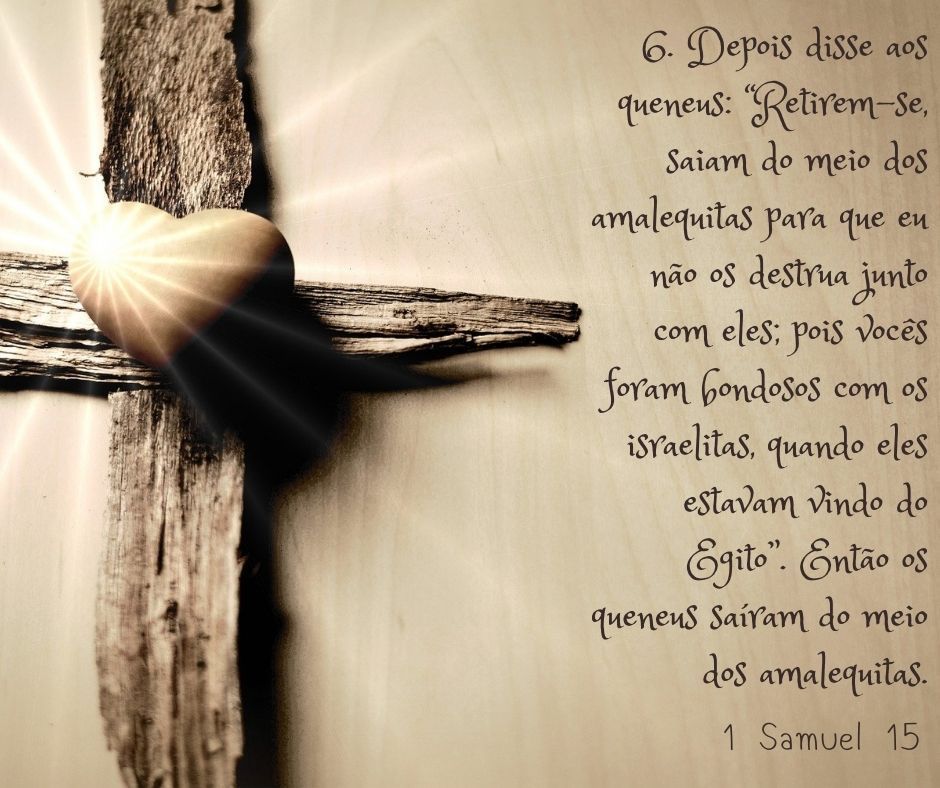 6. Depois disse aos
queneus: “Retirem-se,
saiam do meio dos
amalequitas para que eu
não os destrua junto
com eles; pois vocês
foram bondosos com os
israelitas, quando eles
estavam vindo do
Egito”. Então os
queneus saíram do meio
dos amalequitas.
1 Samuel 15